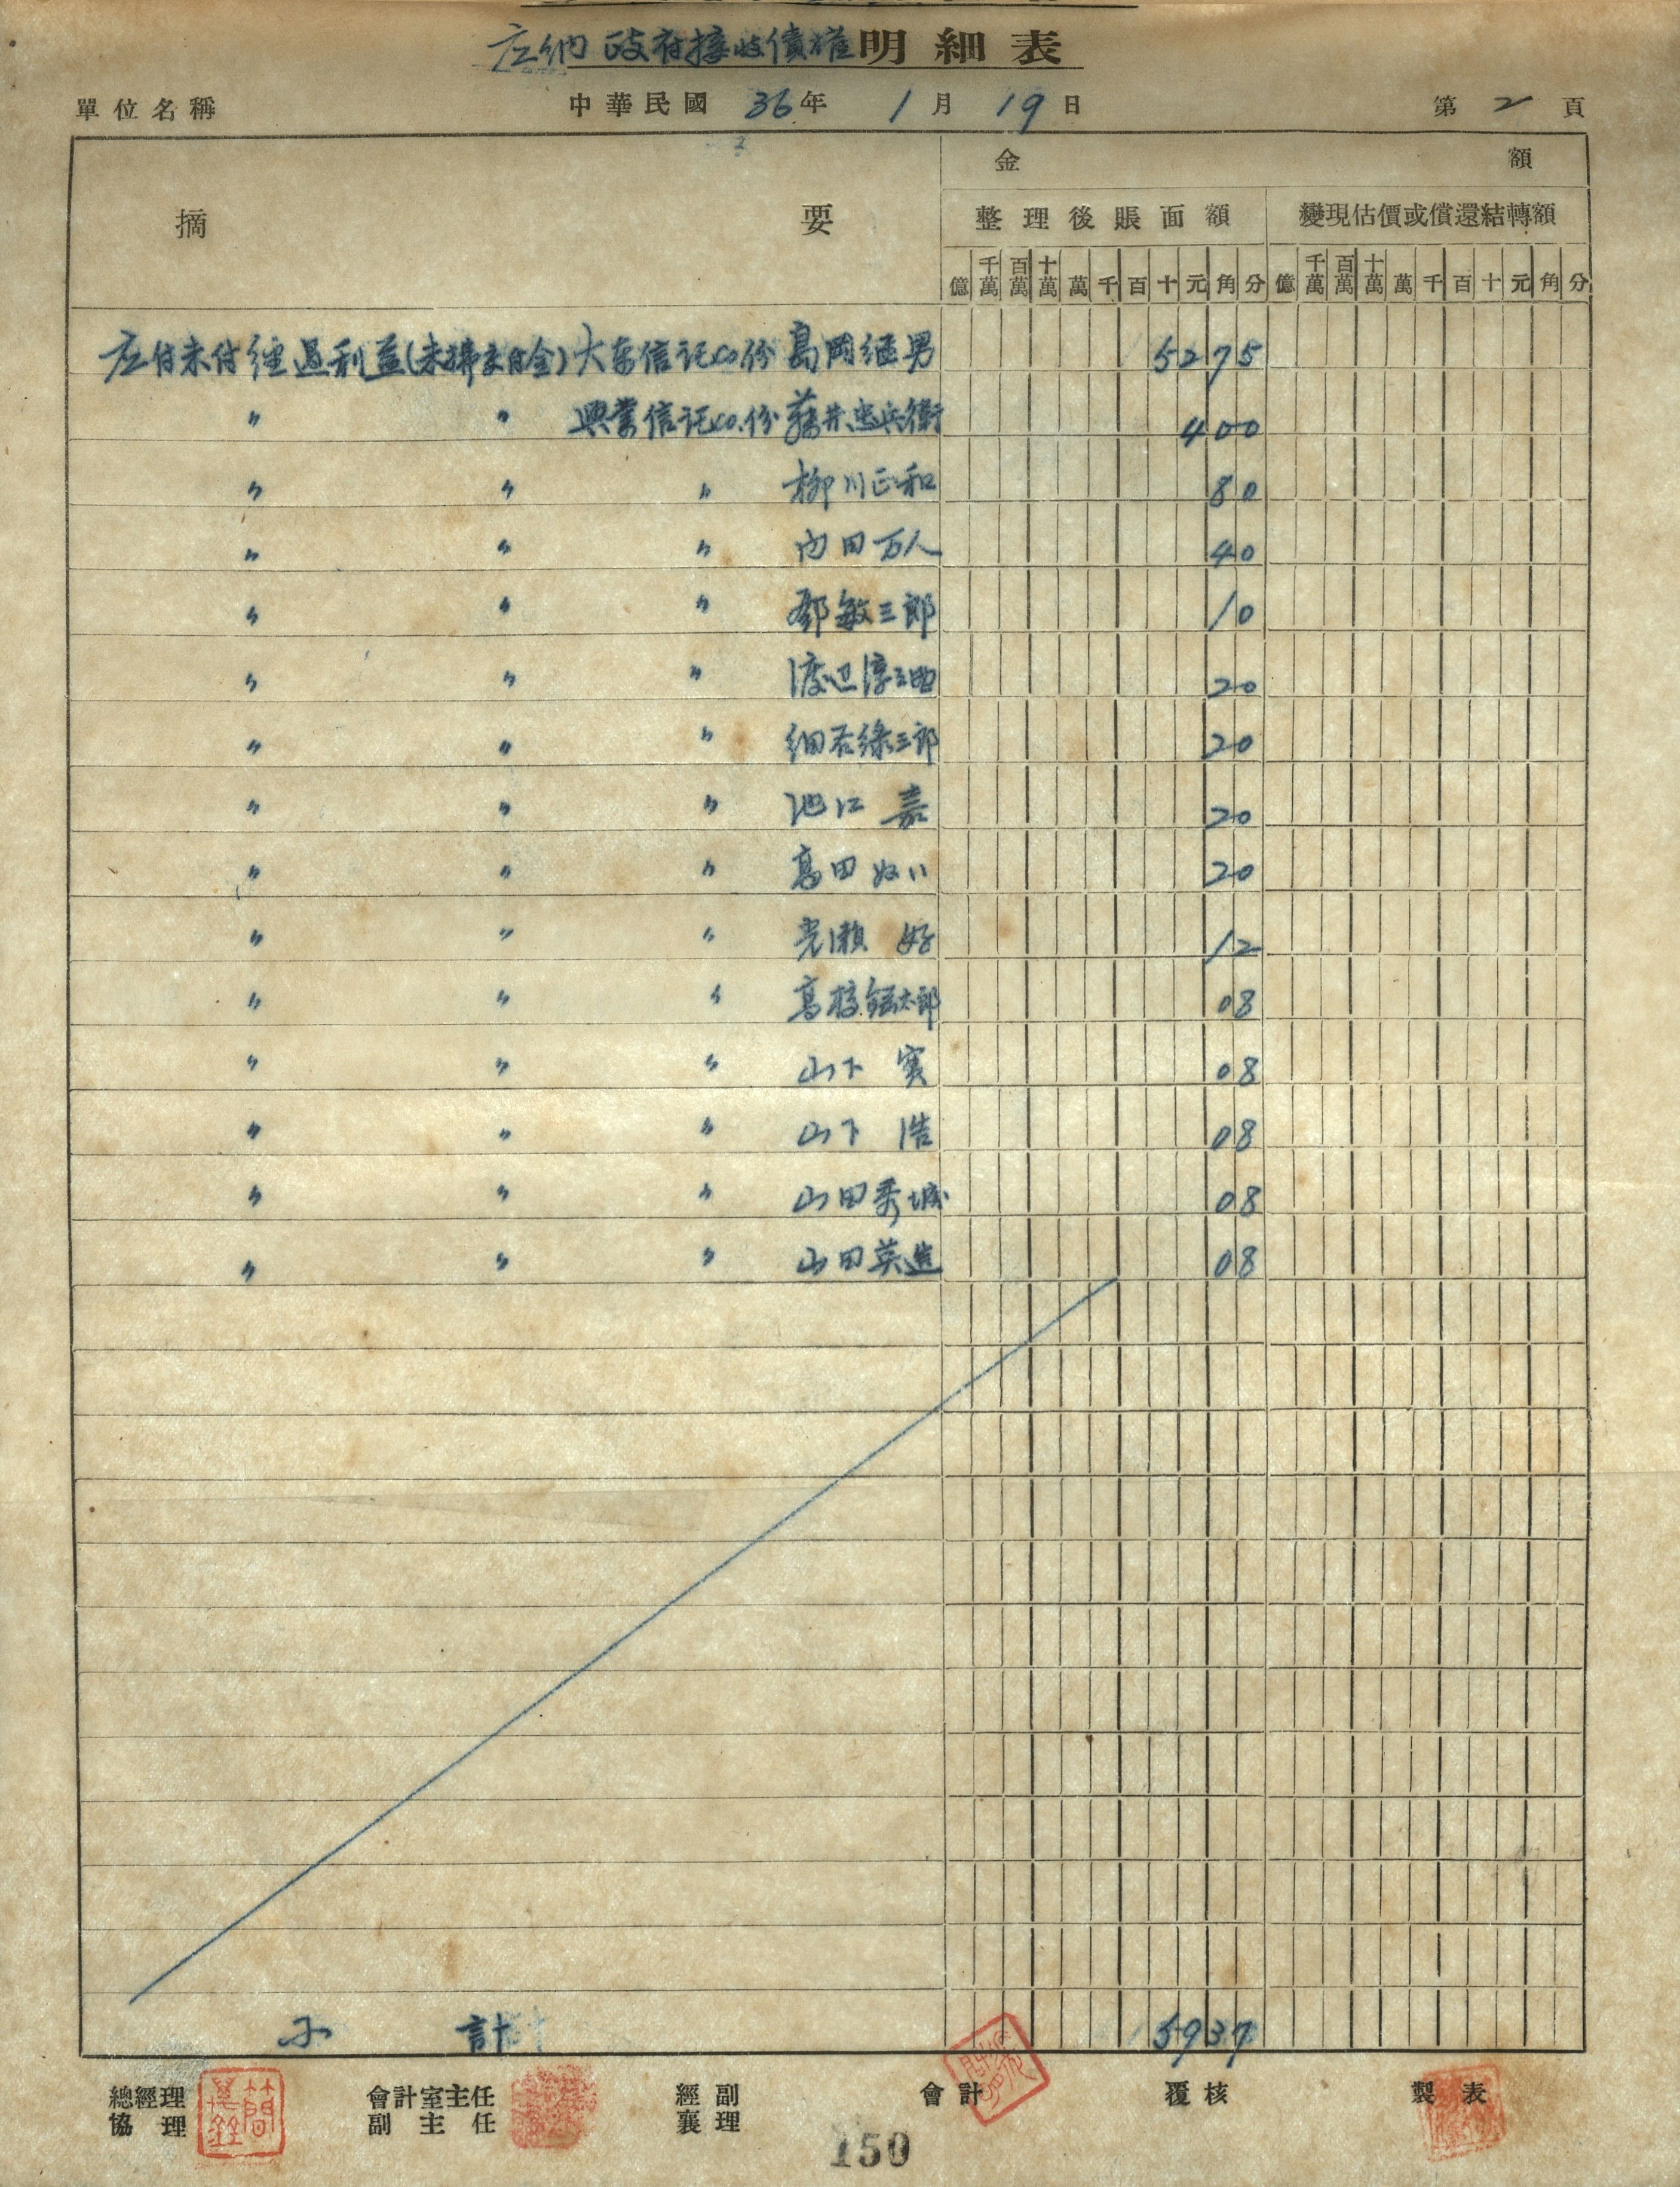 应納政府接收債權明細表
單位名稱 中華民國 36年 1月 19日 第 2 頁
摘要 金額
整理後賬面額 變現估價或償還結轉額
億 千萬 百萬 十萬 萬 千 百 十 元 角 分 億 千萬 百萬 十萬 萬 千 百 十 元 角 分
应付未付經過利益(未拂交付金)大東信託co份 葛岡継男 5275
〃 〃 興業信託co.份 藤井忠兵衛 400
〃 〃 〃 柳川正和 80
〃 〃 〃 内田万人 40
〃 〃 〃 鄧敏三郎 10
〃 〃 〃 渡辺淳 20
〃 〃 〃 細谷緑三郎 20
〃 〃 〃 池江 嘉 20
〃 〃 〃 高田 20
〃 〃 〃 瀬 好 12
〃 〃 〃 高橋太郎 08
〃 〃 〃 山下 実 08
〃 〃 〃 山下 浩 08
〃 〃 〃 山田秀城 08
〃 〃 〃 山田英造 08
小計 5937
總經理 會計室主任 經副 會計 覆核 製表
協理 副主任 襄理
150